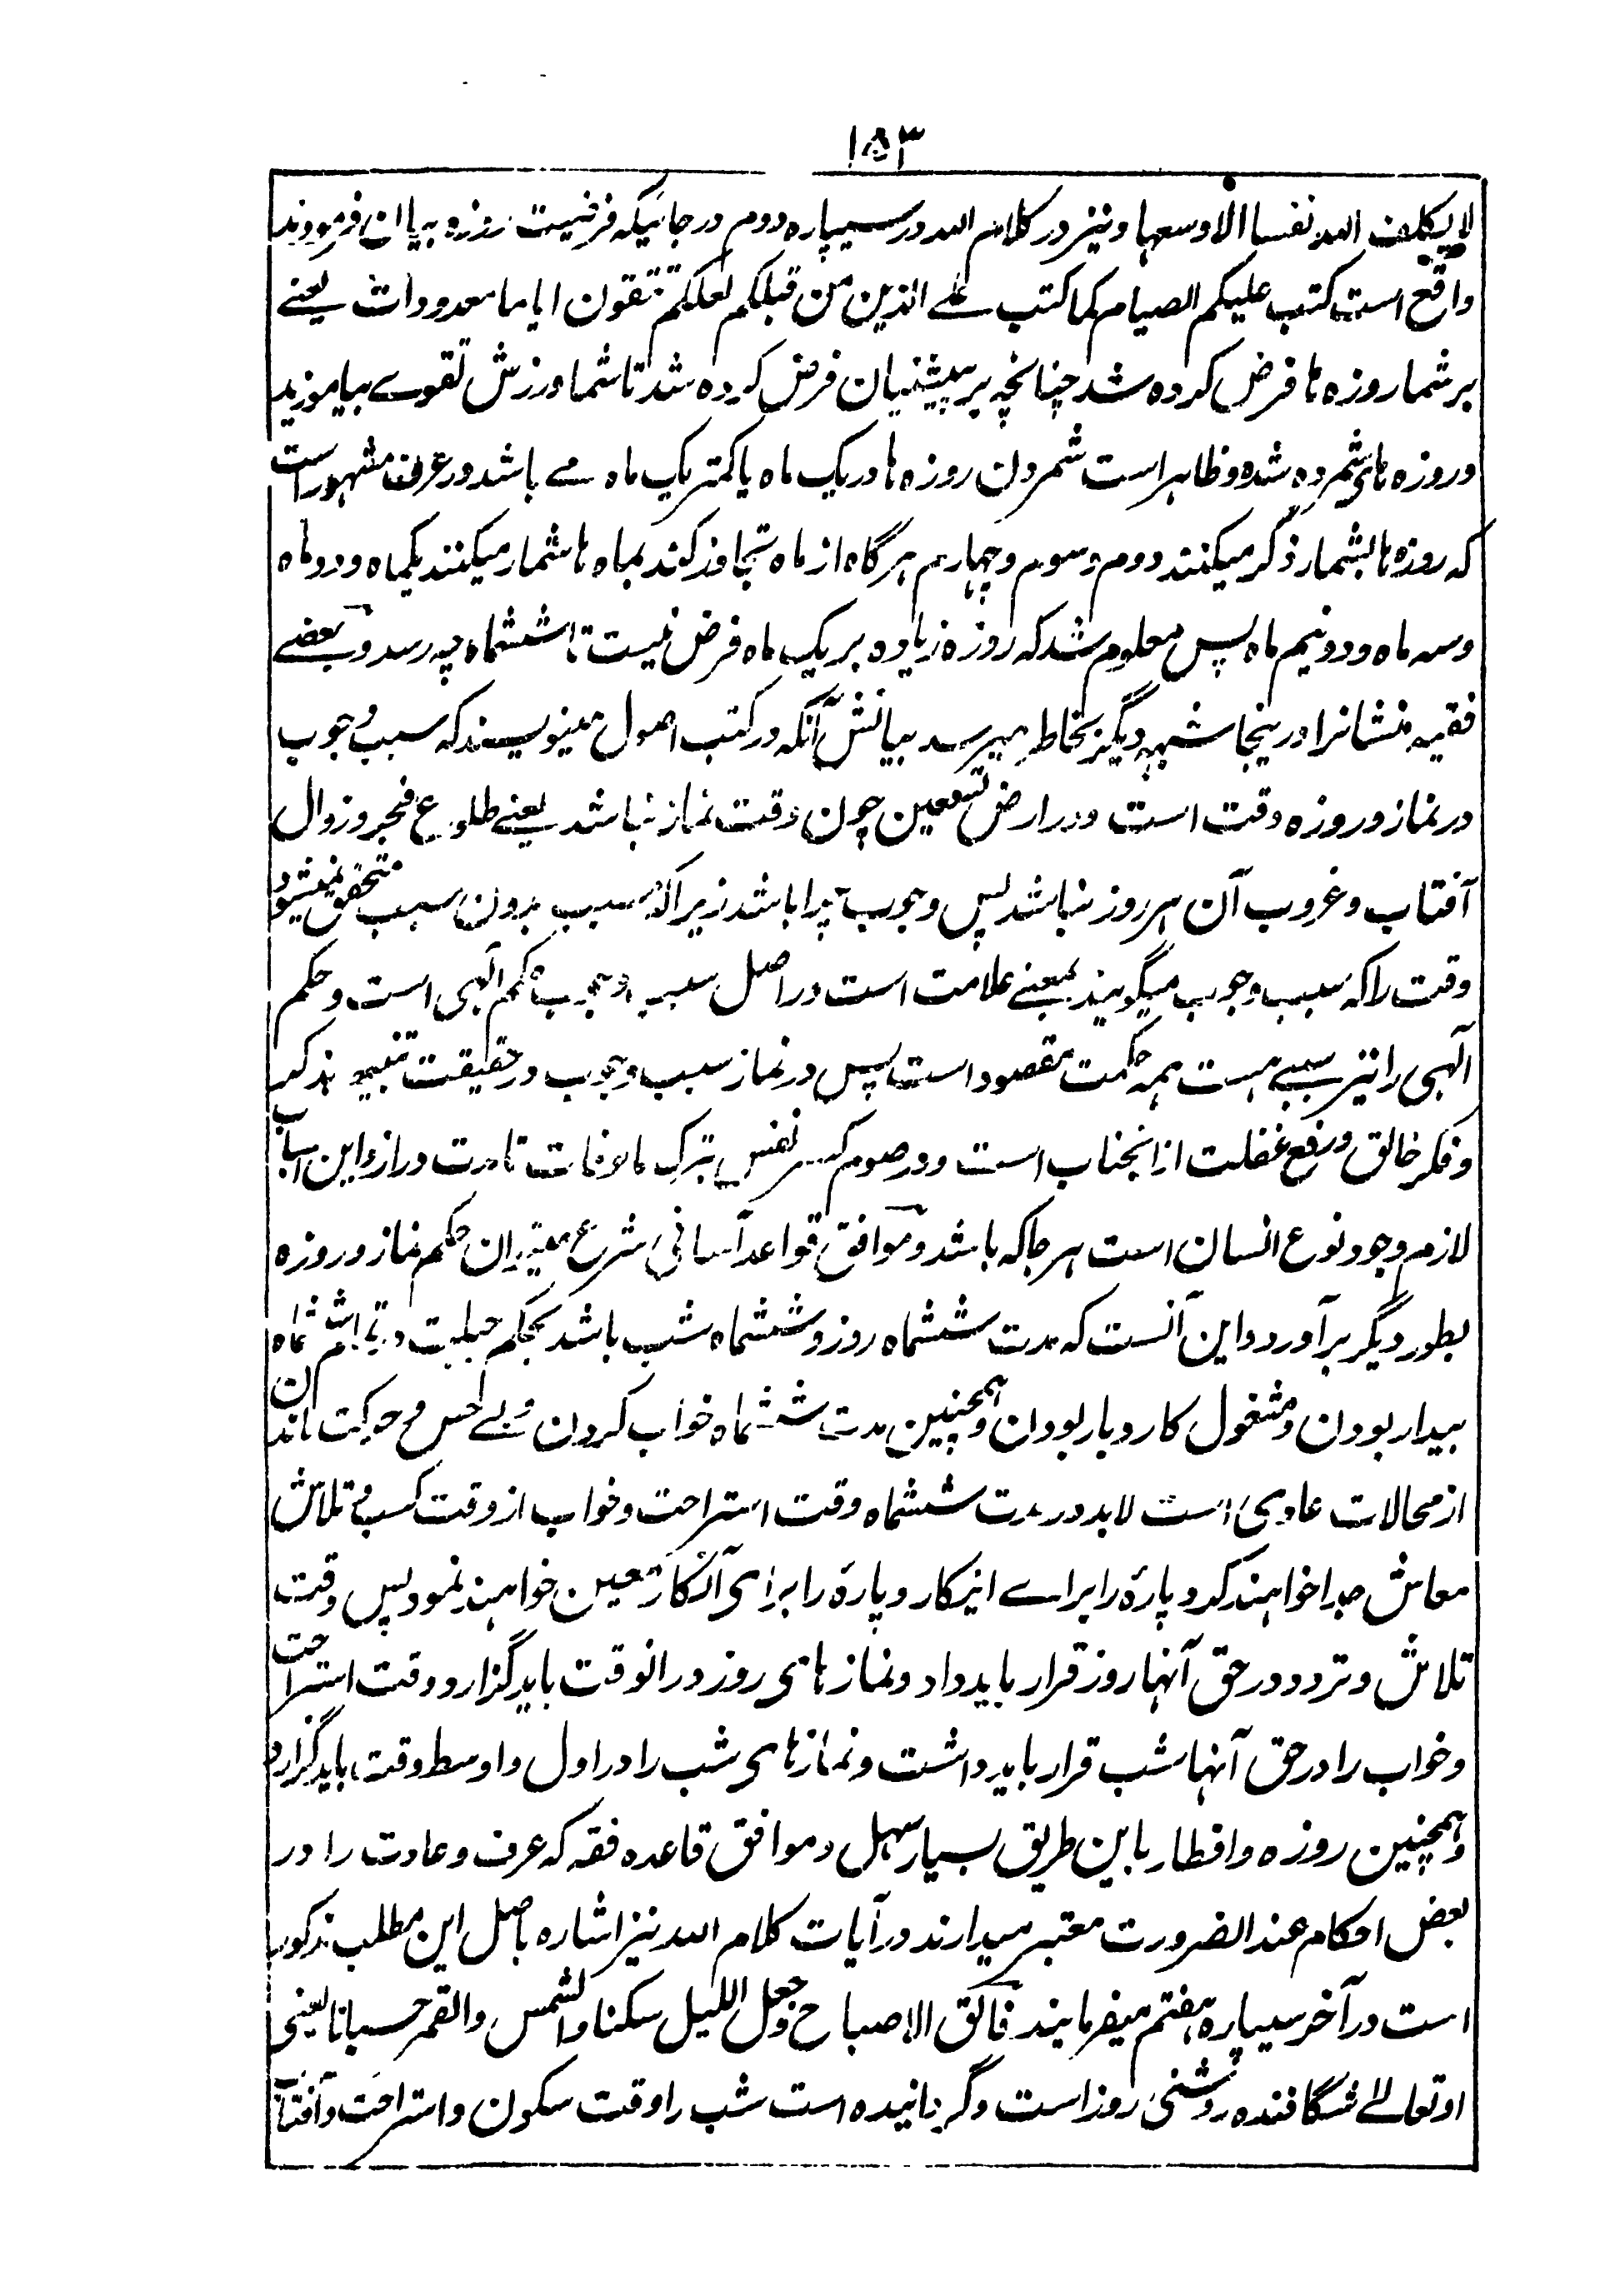 ۱۵۳
لا یکلف الله نفسا الا وسعها و نیز در کلام الله در سیپاره دوم در جائیکه فرضیت روزه بیان فرمودند
واقع است کتب علیکم الصیام کما کتب علے الذین من قبلکم لعلکم تتقون ایاما معدودات یعنے
بر شما روزه ها فرض کرده شد چنانچه بر پیشینیان فرض کرده شد تا شما ورزش تقوے بیاموزید
و روزه های شمرده شده و ظاهر است شمردن روزه ها در یک ماه یا کمتر یک ماه مے باشد در عرف مشهور است
که روزه ها بشمار ذکر میکنند دوم و سوم و چهارم هرگاه از ماه تجاوز کند بماه ها شمار میکنند یکماه و دو ماه
و سه ماه و دو نیم ماه پس معلوم شد که روزه زیاده بر یک ماه فرض نیست تا ششماه چه رسد و بعضے
فقیه منشانرا درینجا شبهه دیگر بخاطر میرسد بیانش آنکه در کتب اصول مینویسند که سبب وجوب
در نماز و روزه وقت است و در ارض تسعین چون وقت نماز نباشد یعنے طلوع فجر و زوال
آفتاب و غروب آن هر روز نباشد پس وجوب چرا باشد زیراکه مسبب بدون سبب متحقق نمیشود
وقت را که سبب وجوب میگویند بمعنے علامت است در اصل سبب وجوب حکم الهی است و حکم
الهی را نیز سببے هست همه حکمت مقصود است پس در نماز سبب وجوب در حقیقت تنبیه بذکر
و فکر خالق و رفع غفلت از انجناب است و در صوم کسر نفس بترک مالوفات تا مدت دراز و این اسباب
لازم وجود نوع انسان است هر جا که باشد و موافق قواعد آسانی شرع میتوان حکم نماز و روزه
بطور دیگر برآورد و این آنست که مدت ششماه روز و ششماه شب باشد بحکم جبلیت تمام ششماه
بیدار بودن و مشغول کاروبار بودن و همچنین مدت ششماه خواب کردن و بے حس و حرکت ماندن
از محالات عادی است لابد در مدت ششماه وقت استراحت و خواب از وقت کسب و تلاش
معاش جدا خواهند کرد و پارهٔ را براے اینکار و پارهٔ را برای آنکار معین خواهند نمود پس وقت
تلاش و تردد در حق آنها روز قرار باید داد و نماز های روز در انوقت باید گزارد و وقت استراحت
و خواب را در حق آنها شب قرار باید داشت و نمازهای شب را در اول و اوسط وقت باید گزارد
و همچنین روزه و افطار باین طریق بسیار سهل و موافق قاعده فقه که عرف و عادت را در
بعض احکام عند الضرورت معتبر میدارند در آیات کلام الله نیز اشاره باصل این مطلب مذکور
است در آخر سیپاره هفتم میفرمایند فالق الاصباح و جعل اللیل سکنا و الشمس و القمر حسبانا یعنی
او تعالے شگافنده روشنی روز است و گردانیده است شب را وقت سکون و استراحت و آفتاب